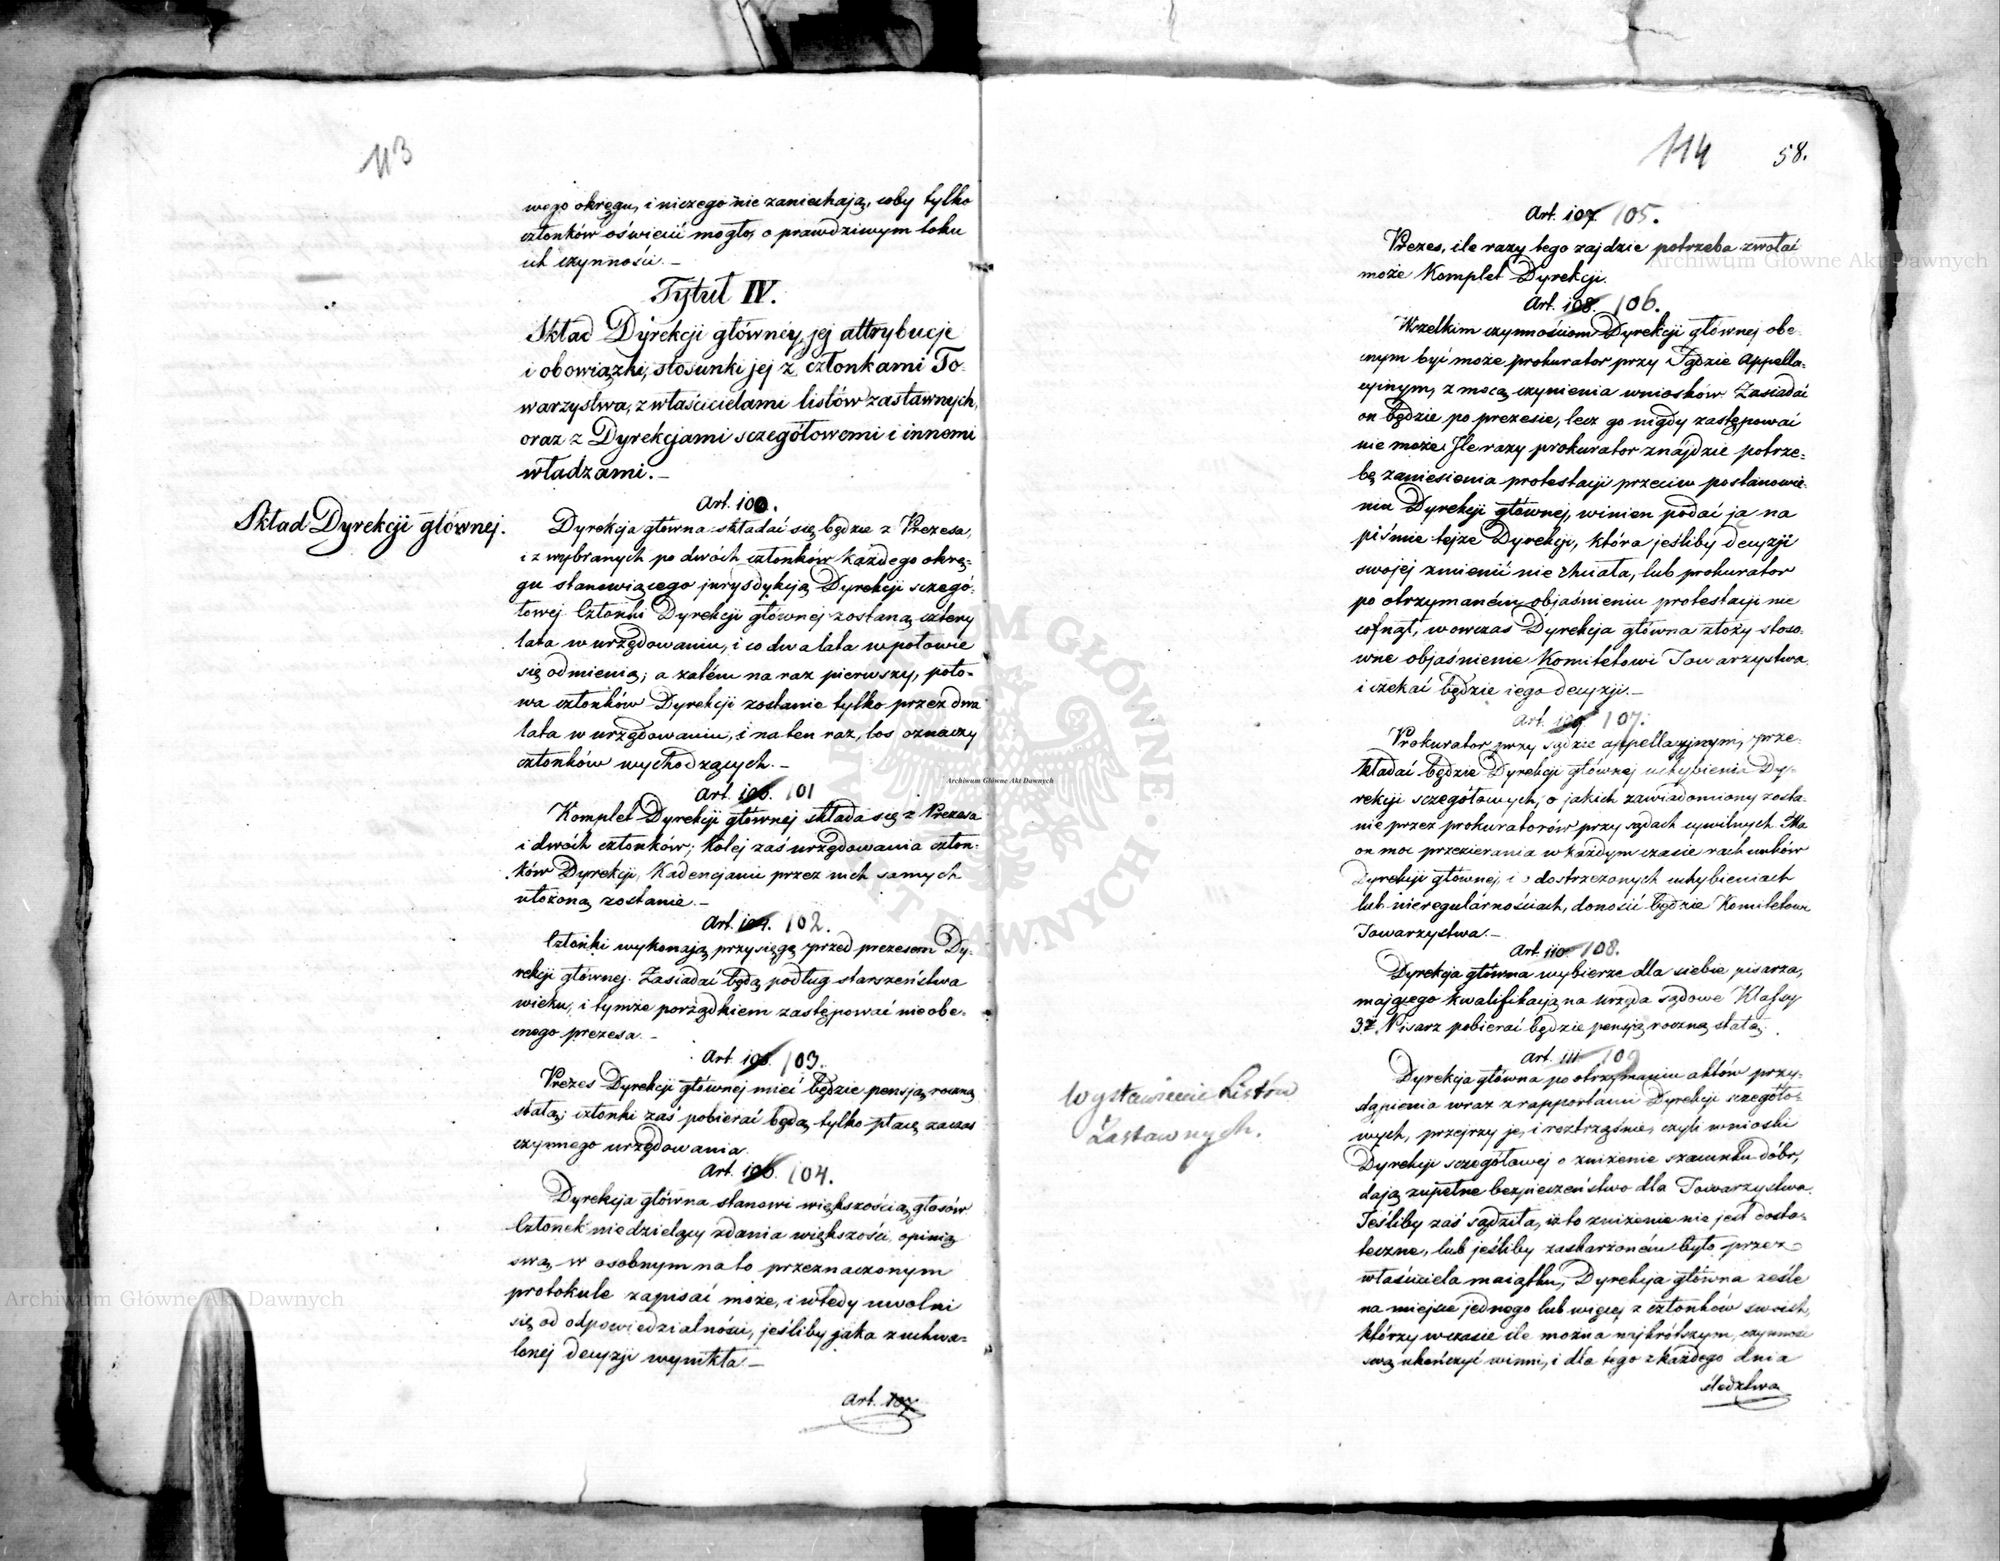 113
wego okręgu, i niczego nie zaniechają, coby tylko
członków oświecić mogło, o prawdziwym toku
ich czynności. —
Tytuł IV.
Skład Dyrekcji głównéy, jej attrybucje
i obowiązki, stosunki jej z członkami To-
warzystwa, z właścicielami listów zastawnych,
oraz z Dyrekcjami sczegółowemi i innemi
władzami. —
Skład Dyrekcji głównej.
Art. 100.
Dyrekcja główna składać się będzie z Prezesa,
i z wybranych po dwóch członków każdego okrę-
gu stanowiącego jurysdykcją Dyrekcji sczegó-
łowej. Członki Dyrekcji głównej zostaną cztery
lata w urzędowaniu, i co dwa lata w połowie
się odmienią; a zatém na raz pierwszy, poło-
wa członków Dyrekcji zostanie tylko przez dwa
lata w urzędowaniu, i na ten raz, los oznaczy
członków wychodzących. —
Art. 101
Komplet Dyrekcji głównej składa się z Prezesa
i dwóch członków; kolej zaś urzędowania człon-
ków Dyrekcji, Kadencjami przez nich samych
ułożoną zostanie. —
Art. 102.
Członki wykonają przysięgę przed prezesem Dy-
rekcji głównej. Zasiadać będą podług starszeństwa
wieku, i tymże porządkiem zastępować nieobe-
cnego prezesa. —
Art. 103.
Prezes Dyrekcji głównej mieć będzie pensją roczną
stałą; członki zaś pobierać będą tylko płacę za czas
czynnego urzędowania.
Art. 106. 104.
Dyrekcja główna stanowi większością głosów
Członek niedzielący zdania większości, opinią
swą, w osobnym na to przeznaczonym
protokule zapisać może, i wtedy uwolni
się od odpowiedzialności, jeśliby jaka z uchwa-
lonej decyzji wynikła. —
Art. 107
114 58.
Art. 107 105.
Prezes, ile razy tego zajdzie potrzeba zwołać
może Komplet Dyrekcji.
Art. 108. 106.
Wszelkim czynnościom Dyrekcji głównej obe-
cnym być może prokurator przy Sądzie Appella-
cyinym, z mocą czynienia wniosków. Zasiadać
on będzie po prezesie, lecz go nigdy zastępować
nie może. Ile razy prokurator znajdzie potrze-
bę zaniesienia protestacji przeciw postanowie-
niu Dyrekcji głównej, winien podać ją na
piśmie tejże Dyrekcji, która jeśliby decyzji
swojej zmienić nie chciała, lub prokurator
po otrzymaném objaśnieniu protestacji nie
cofnął, wowczas Dyrekcja główna złoży stoso-
wne objaśnienie Komitetowi Towarzystwa.
i czekać będzie iego decyzji. —
Art. 109 107.
Prokurator przy sądzie appellacyjnym, prze-
kładać będzie Dyrekcji głównej uchybienia Dy-
rekcji sczegółowych, o jakich zawiadomiony zosta-
nie przez prokuratorów przy sądach cywilnych. Ma
on moc przezierania w każdym czasie rachunków
Dyrekcji głównej, i o dostrzeżonych uchybieniach
lub nieregularnościach, donosić będzie Komitetowi
Towarzystwa. —
Art. 110 108.
Dyrekcja główna wybierze dla siebie pisarza,
mającego kwalifikacją na urzęda sądowe Klassy
Pisarz pobierać będzie pensją roczną stałą.
Wystawienie Listów
Zastawnych.
Art. 111 109
Dyrekcja główna po otrzymaniu aktów przy-
stąpienia wraz z rapportami Dyrekcji sczegóło-
wych, przejrzy je, i roztrząśnie, czyli wnioski
Dyrekcji sczegółowej o zniżenie szacunku dóbr,
dają zupełne bezpieczeństwo dla Towarzystwa.
Jeśliby zaś sądziła, iż to zniżenie nie jest dosta-
teczne, lub jeśliby zaskarżoném było przez
właściciela maiątku, Dyrekcja główna ześle
na miejsce jednego lub więcej z członków swoich,
którzy w czasie ile można najkrótszym, czynność
swą ukończyć winni, i dla tego z każdego dnia
śledztwa
Archiwum Główne Akt Dawnych
Archiwum Główne Akt Dawnych
Archiwum Główne Akt Dawnych